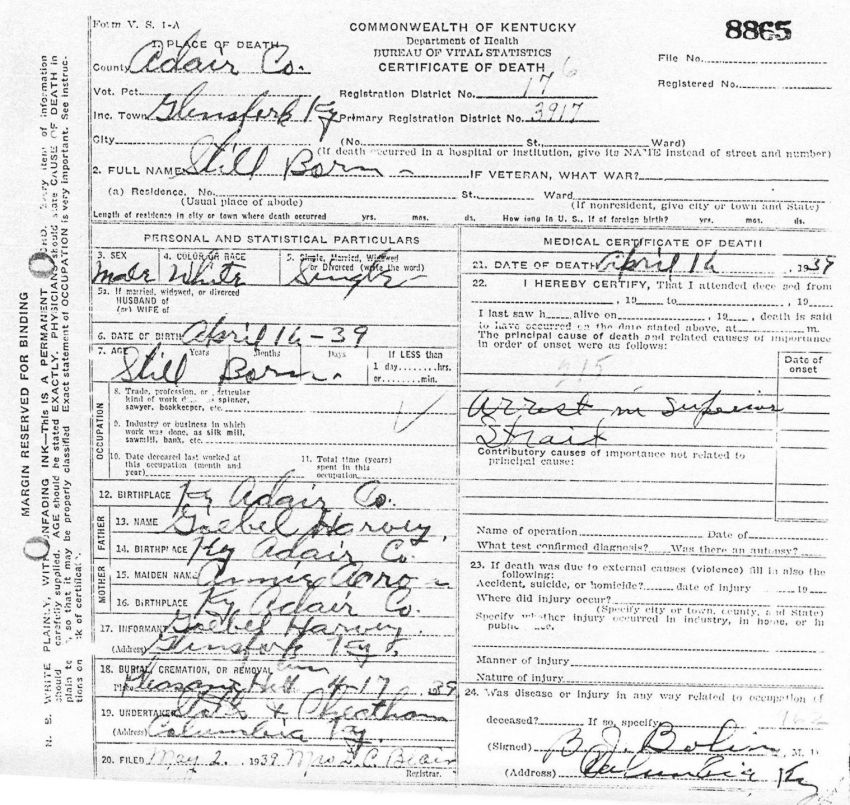 Form V. S. 1-A
COMMONWEALTH OF KENTUCKY
Department of Health
BUREAU OF VITAL STATISTICS
CERTIFICATE OF DEATH
8865
File No.
Registered No.
1. PLACE OF DEATH
County Adair Co.
Vot. Pct.
Registration District No. 176
Inc. Town Glensfork Ky
Primary Registration District No. 3917
City (No. St., Ward)
(If death occurred in a hospital or institution, give its NAME instead of street and number)
2. FULL NAME Still Born - IF VETERAN, WHAT WAR?
(a) Residence. No. St. Ward
(Usual place of abode) (If nonresident, give city or town and State)
Length of residence in city or town where death occurred yrs. mos. ds. How long in U. S., If of foreign birth? yrs. mos. ds.
PERSONAL AND STATISTICAL PARTICULARS
3. SEX 4. COLOR OR RACE 5. Single, Married, Widowed
or Divorced (write the word)
Male White Single
5a. If married, widowed, or divorced
HUSBAND of
(or) WIFE of
6. DATE OF BIRTH April 16-39
7. AGE Years Months Days If LESS than
1 day hrs.
or min.
Still Born
OCCUPATION
8. Trade, profession, or particular
kind of work spinner,
sawyer, bookkeeper, etc.
9. Industry or business in which
work was done, as silk mill,
sawmill, bank, etc.
10. Date deceased last worked at
this occupation (month and
year)
11. Total time (years)
spent in this
occupation
12. BIRTHPLACE Ky Adair Co.
FATHER
13. NAME Goebel Harvey
14. BIRTHPLACE Ky Adair Co.
MOTHER
15. MAIDEN NAME Annie
16. BIRTHPLACE Ky Adair Co.
17. INFORMANT Goebel Harvey
(Address) Glensfork Ky.
18. BURIAL, CREMATION, OR REMOVAL
Place Pleasant Hill 4-17, 1939
19. UNDERTAKER & Cheatham
(Address) Columbia Ky.
20. FILED May 2, 1939 Mrs. Blair
Registrar.
MEDICAL CERTIFICATE OF DEATH
21. DATE OF DEATH April 16, 1939
22. I HEREBY CERTIFY, That I attended deceased from
, 19 to , 19
I last saw h alive on , 19 , death is said
to have occurred on the date stated above, at m.
The principal cause of death and related causes of importance
in order of onset were as follows:
Date of
onset
Arrest in Superior
Strait
Contributory causes of importance not related to
principal cause:
Name of operation Date of
What test confirmed diagnosis? Was there an autopsy?
23. If death was due to external causes (violence) fill in also the
following:
Accident, suicide, or homicide? date of injury 19
Where did injury occur?
(Specify city or town, county, and State)
Specify whether injury occurred in industry, in home, or in
public
Manner of injury
Nature of injury
24. Was disease or injury in any way related to occupation of
deceased? If so, specify
(Signed) B. J. Bolin, M. D.
(Address) Columbia Ky
MARGIN RESERVED FOR BINDING
N. B. WRITE PLAINLY, WITH UNFADING INK—THIS IS A PERMANENT RECORD. Every item of information
should carefully supplied. AGE should be stated EXACTLY. PHYSICIANS should state CAUSE OF DEATH in
plain so that it may be properly classified. Exact statement of OCCUPATION is very important. See instruc-
tions on back of certificate.